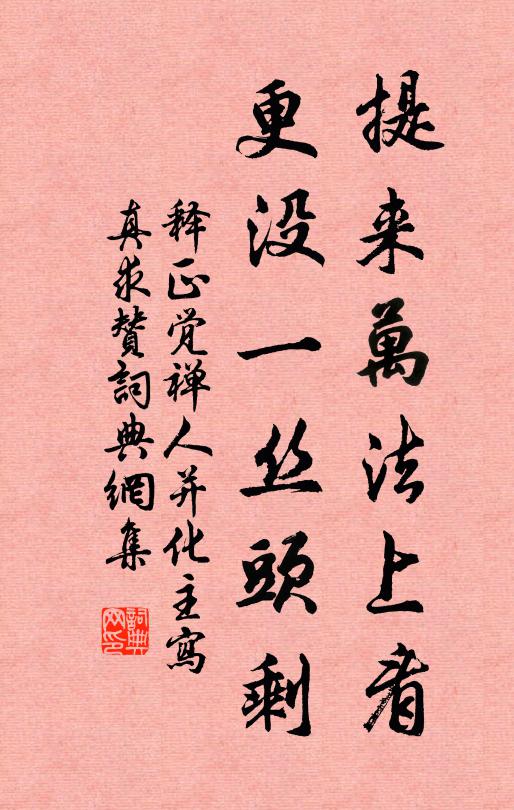 提来萬法上看
更没一丝頭剩
释正觉禅人并化主寫
真求賛詞典網集
詞典网印